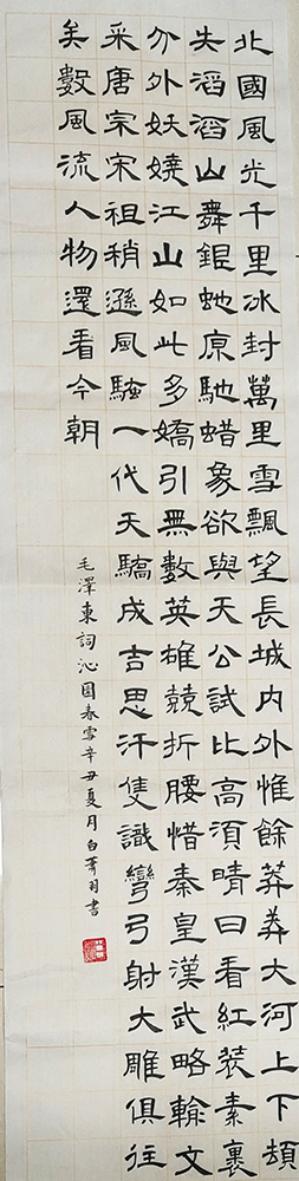 北國風光千里冰封萬里雪飄望長城内外惟餘莽莽大河上下頓
失滔滔山舞銀蛇原馳蜡象欲與天公試比高須晴日看紅裝素裹
分外妖嬈江山如此多嬌引無數英雄競折腰惜秦皇漢武略輸文
采唐宗宋祖稍遜風騷一代天驕成吉思汗隻識彎弓射大雕俱往
矣數風流人物還看今朝
毛澤東詞沁園春雪辛丑夏月白羽書